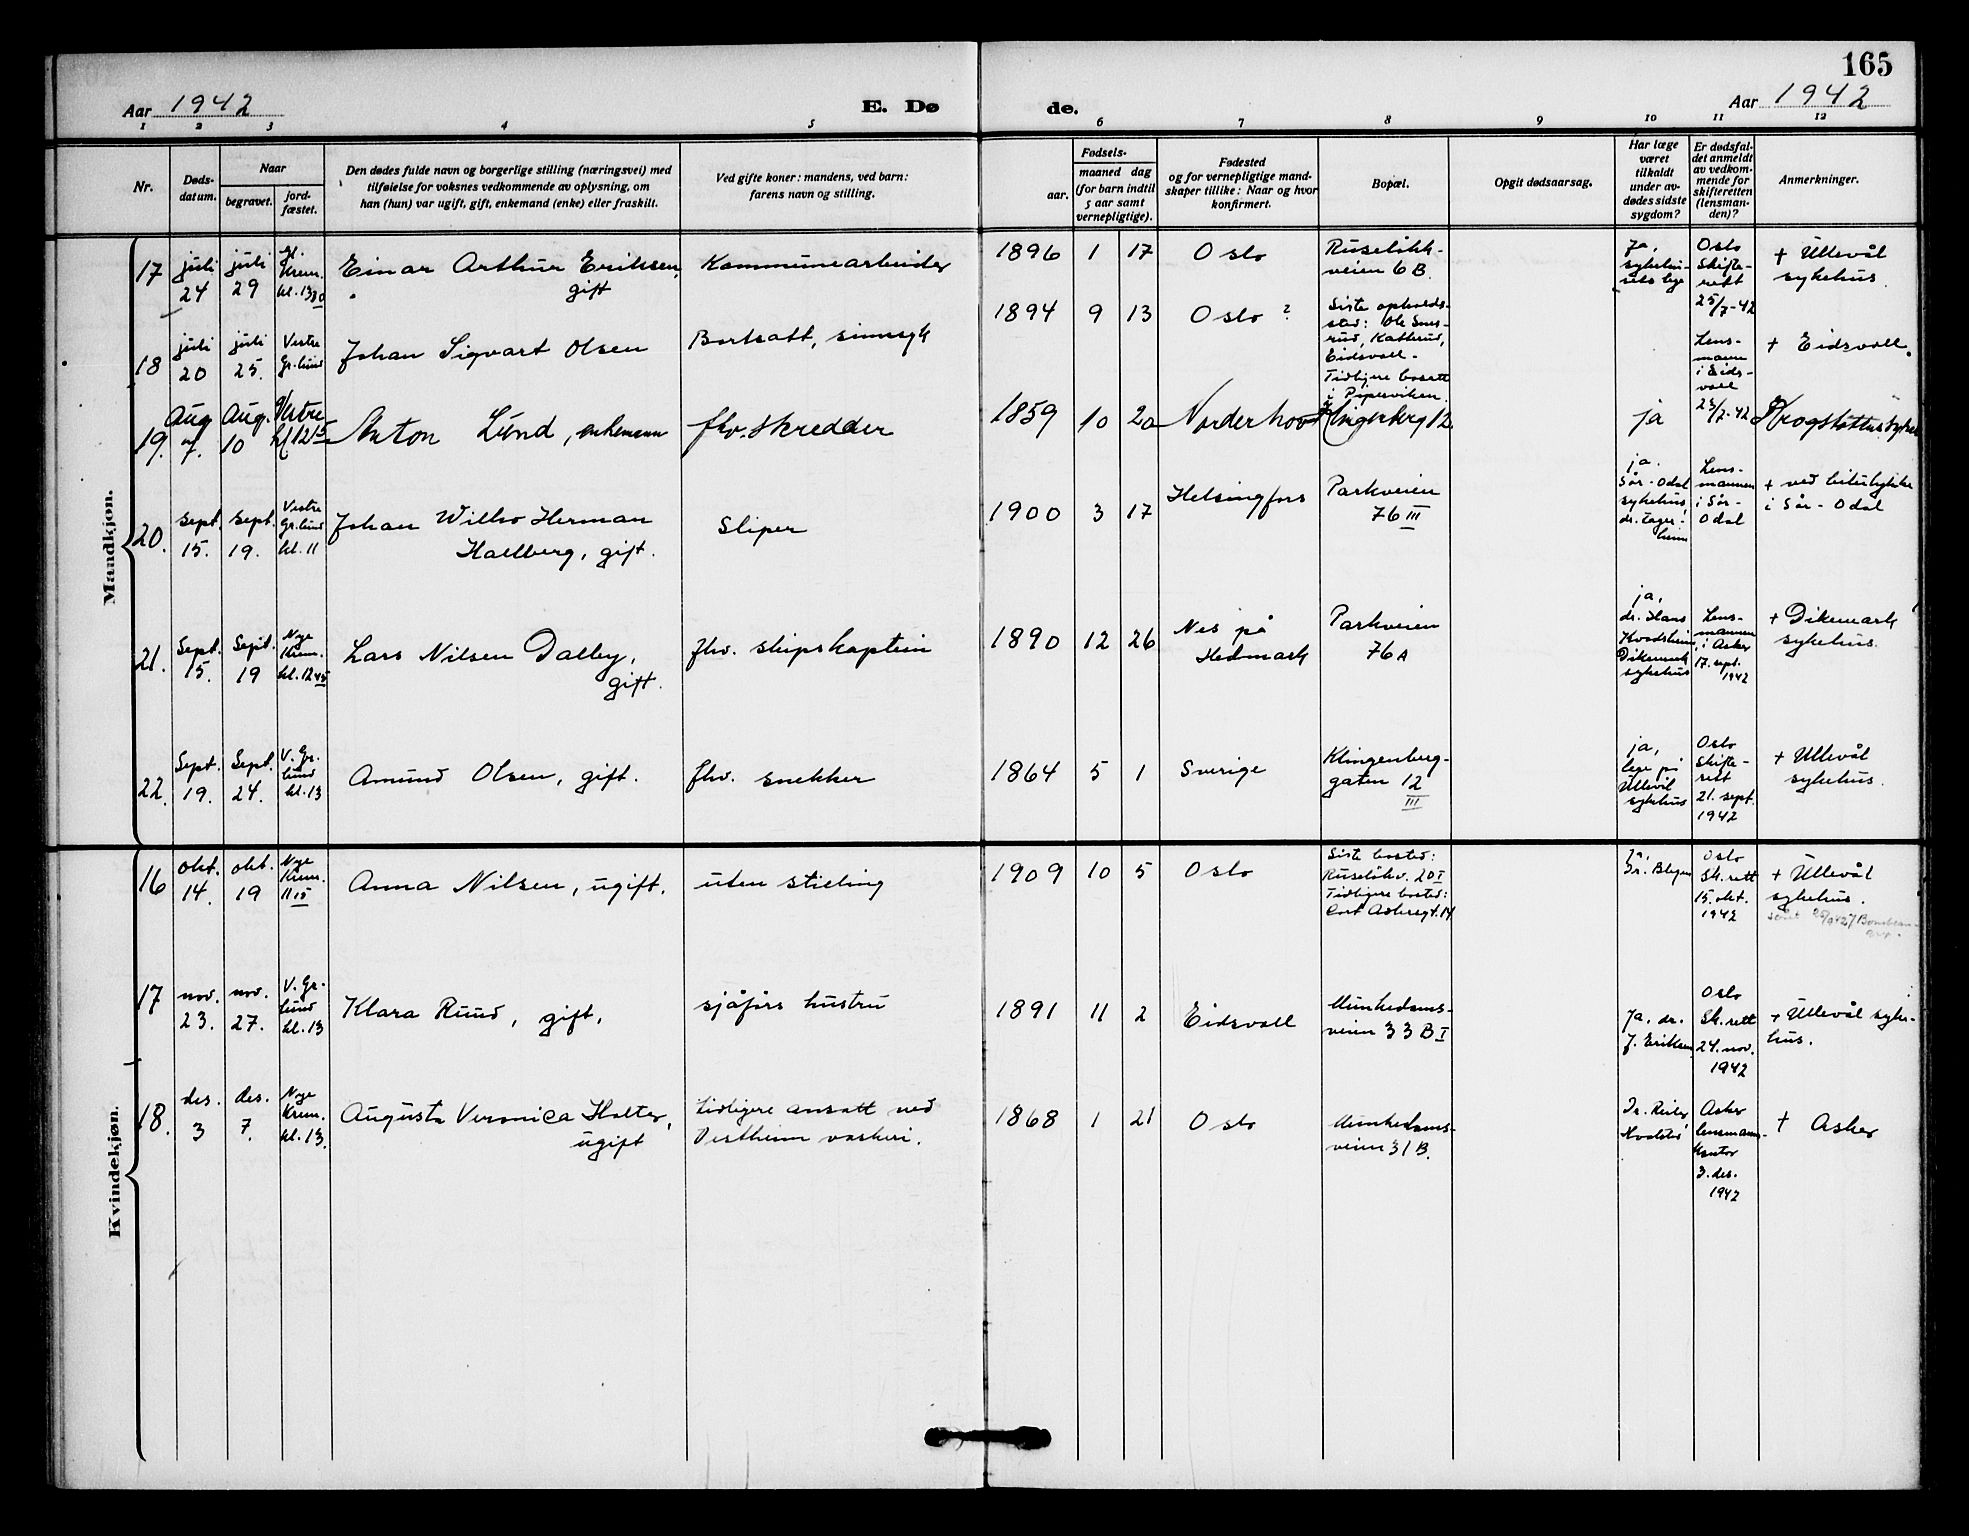 165
Aar 1942
E. Dø
de.
Aar 1942
1 2 3 4 5 6 7 8 9 10 11 12
Nr.
Døds-
datum.
Naar
begravet.
jord-
fæstet.
Den dødes fulde navn og borgerlige stilling (næringsvei) med
tilføielse for voksnes vedkommende av oplysning, om
han (hun) var ugift, gift, enkemand (enke) eller fraskilt.
Ved gifte koner: mandens, ved barn:
farens navn og stilling.
Fødsels-
aar.
maaned dag
(for barn indtil
5 aar samt
vernepligtige).
Fødested
og for vernepligtige mand-
skaper tillike: Naar og hvor
konfirmert.
Bopæl.
Opgit dødsaarsag.
Har læge
været
tilkaldt
under av-
dødes sidste
sygdom?
Er dødsfal-
det anmeldt
av vedkom-
mende for
skifteretten
(lensman-
den)?
Anmerkninger.
Mandkjøn.
17
juli
24
juli
29
Krem.
kl. 13 30
Einar Arthur Eriksen,
gift
Kommunearbeider
1896 1 17
Oslo
Ruseløkk-
veien 6 B.
Ja,
sykehu-
sets lege
Oslo
Skifte-
rett
25/7-42
+ Ullevål
sykehus.
18
juli
20
juli
25.
Vestre
Gr.lund
Johan Sigvart Olsen
Bortsatt, sinnsyk
1894 9 13
Oslo ?
Siste opholds-
sted:
Eidsvoll.
Tidligere bosatt
i Piperviken.
Lens-
mann
i Eids-
voll
23/7-42
+ Eidsvoll.
19.
Aug
7.
Aug.
10
Vestre
kl 12 15
Anton Lund, enkemann
fhv. skredder
1859 10 20
Norderhov
Klingenbrg 12
ja
Krogstøttus syk
20.
Sept.
15.
Sept.
19.
Vestre
Gr.lund
kl. 11
Johan Wilho Herman
Hallberg, gift.
Sliper
1900 3 17
Helsingfors
Parkveien
76 III
ja.
Sør-Odal
sykehus,
dr.
Lens-
mannen
i Sør-
Odal
+ ved bilulykke
i Sør-Odal
21.
Sept.
15.
Sept.
19
Nye
Krem.
kl. 12 45
Lars Nilsen Dalby,
gift.
fhv. skipskaptein
1890 12 26
Nes på
Hedmark
Parkveien
76 A
ja,
dr. Hans
Dikemark
sykehus
Lens-
mannen
i Asker
17. sept.
1942
+ Dikemark
sykehus.
22.
Sept.
19.
Sept.
24.
V. Gr.
lund
kl. 13
Amund Olsen, gift.
fhv. snekker
1864 5 1
Sverige
Klingenberg-
gaten 12
III
ja,
lege på
Ullevål
sykehus
Oslo
Skifte-
rett
21. sept.
1942
+ Ullevål
sykehus.
Kvindekjøn.
16
okt.
14.
okt.
19
Nye
Krem.
11 15
Anna Nilsen, ugift.
uten stilling
1909 10 5
Oslo
Siste bosted:
Ruseløkv. 20 I
Tidligere bosted:
Cort Adelersgt. 14
Ja,
Dr.
Oslo
Sk. rett
15. okt.
1942
+ Ullevål
sykehus.
17
nov.
23.
nov.
27.
V. Gr.
lund
kl. 13
Klara Ruud, gift,
sjåførs hustru
1891 11 2
Eidsvoll
Munkedams-
veien 33 B I
Ja, dr.
J. Eriksen
Oslo
Sk. rett
24. nov.
1942
+ Ullevål syke-
hus.
18.
des.
3
des.
7.
Nye
Krem.
kl. 13.
Augusta Veronica Holter,
ugift
Tidligere ansatt ved
Vestheim vaskeri.
1868 1 21
Oslo
Munkedams-
veien 31 B.
Dr.
Hvalstad
Asker
lensmanns-
kontor
3. des.
1942
+ Asker